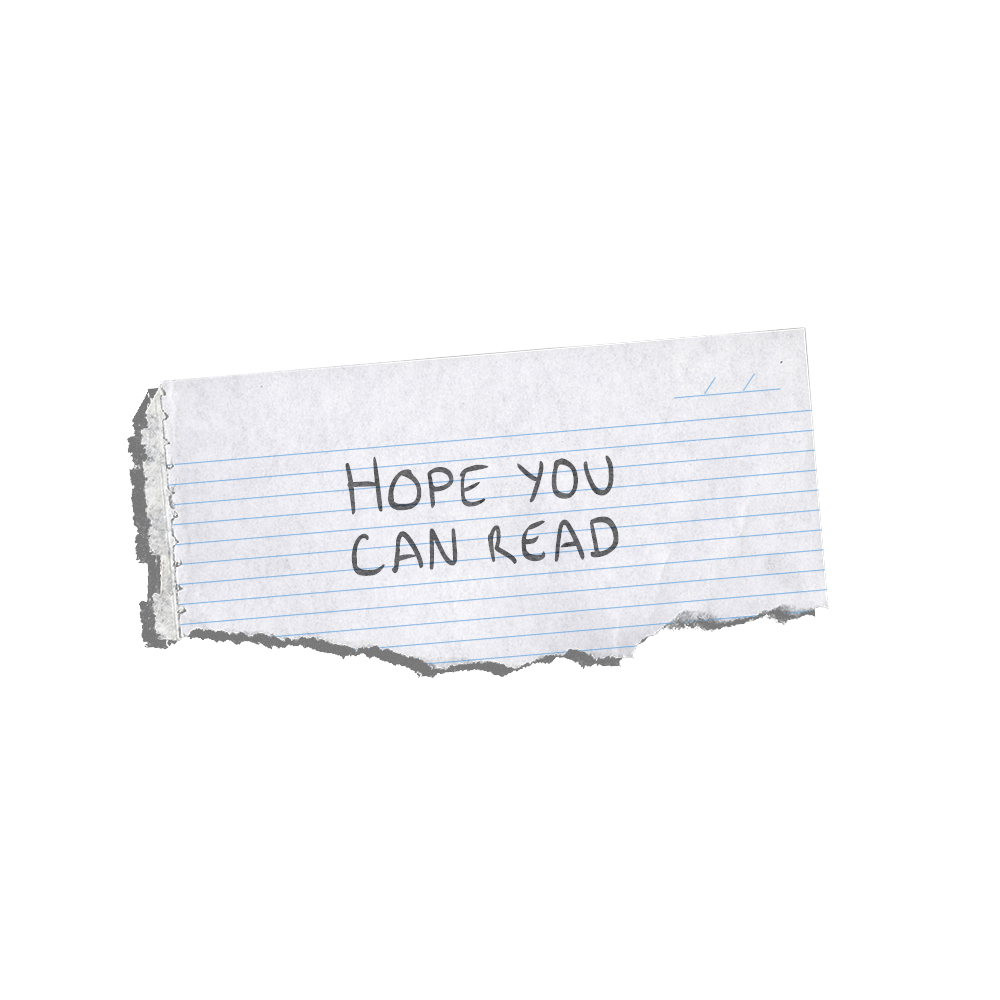 HOPE YOU
CAN READ